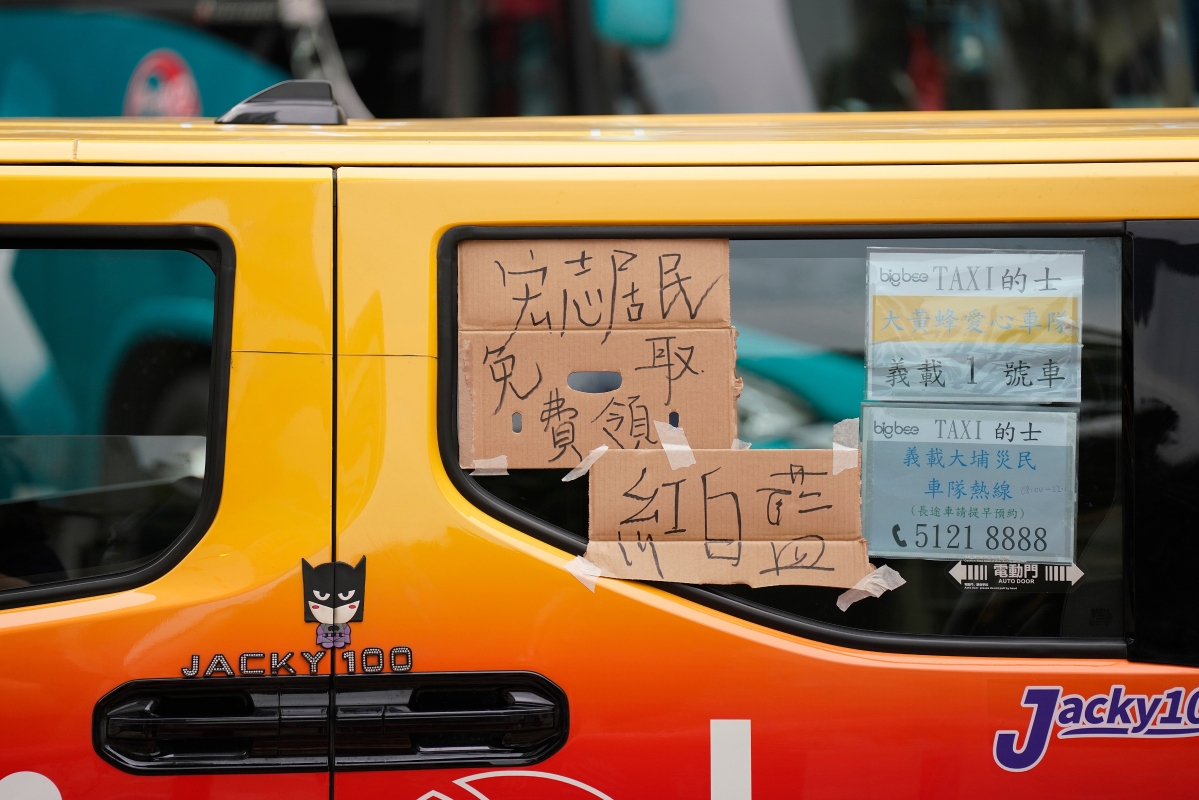 宏志居民
免 取
費領
紅白藍
bigbee TAXI的士
大黃蜂愛心車隊
義載 1 號車
bigbee TAXI 的士
義載大埔災民
車隊熱線
(長途車請提早預約)
5121 8888
電動門
AUTO DOOR
JACKY 100
Jacky10